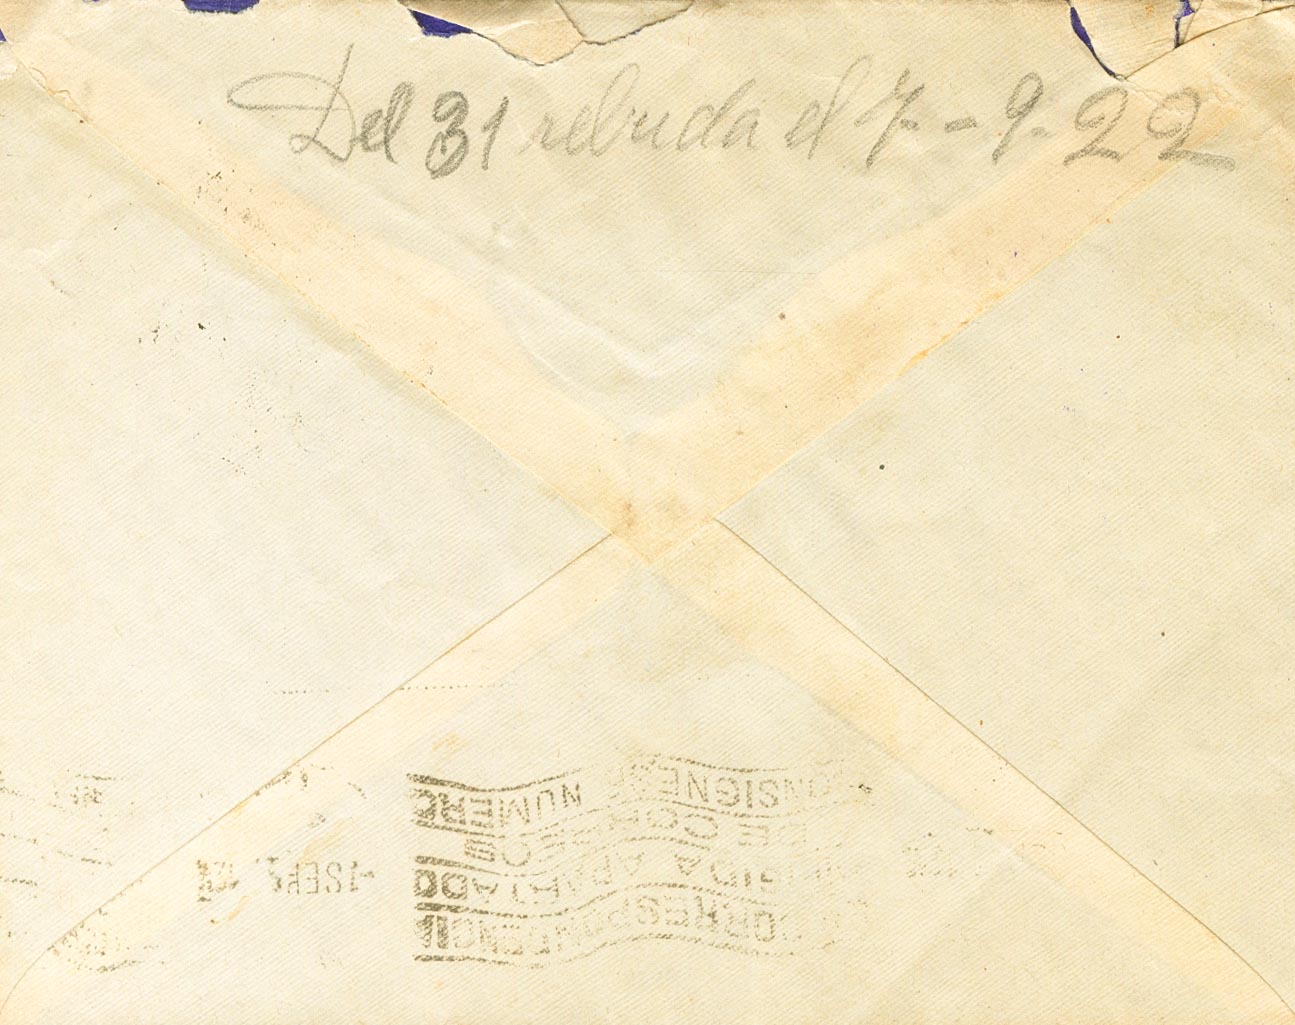 Del 31 rebuda el 7-9-22
CORRESPONDENCIA
DIRIGIDA A APARTADO
DE CORREOS
CONSIGNESE NUMERO
-1 SEP